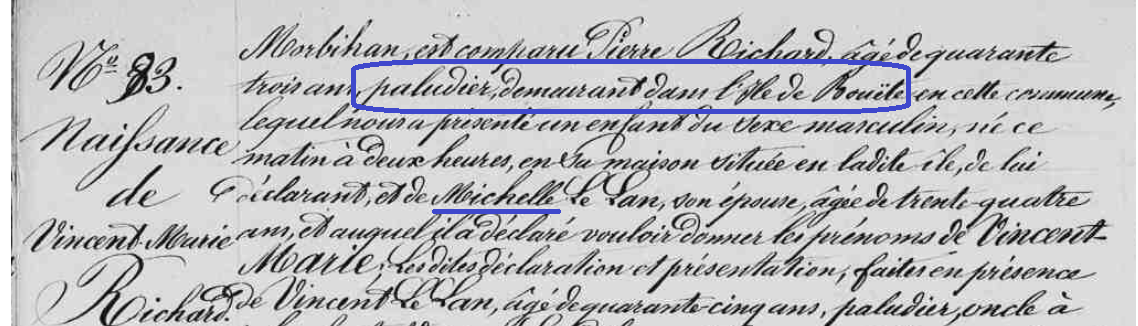 Morbihan, est comparu Pierre Richard, âgé de quarante
Nº 83.
trois ans, paludier, demeurant dans l'Ile de Bouëte en cette commune,
lequel nous a présenté un enfant du sexe masculin, né ce
Naissance
matin à deux heures, en sa maison située en ladite île, de lui
de
déclarant, et de Michelle Le Lan, son épouse, âgée de trente-quatre
Vincent-Marie
ans, et auquel il a déclaré vouloir donner les prénoms de Vincent-
Marie; Les dites déclaration et présentation, faites en présence
Richard.
de Vincent Le Lan, âgé de quarante cinq ans, paludier, oncle à